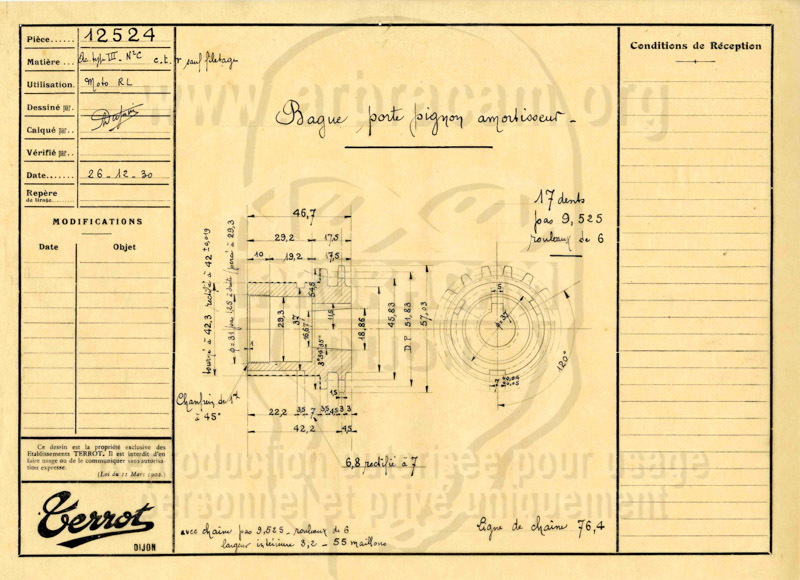 Pièce...... 12524
Matière... Ac. typ. III - N°C c.t.r sauf filetage
Utilisation. Moto RL
Dessiné par.
Calqué par..
Vérifié par..
Date....... 26-12-30
Repère
de tirage.......
MODIFICATIONS
Date Objet
Ce dessin est la propriété exclusive des
Etablissements TERROT. Il est interdit d'en
faire usage ou de le communiquer sans autorisa-
tion expresse.
(Loi du 11 Mars 1902.)
Terrot
DIJON
Bague porte pignon amortisseur -
17 dents
pas 9,525
rouleaux de 6
46,7
29,2 17,5
10 19,2 17,5
tourné à 42,3 rectifié à 42 ±0,019
percé à 29,3
54,5
29,3
37
16,67
11,5
18,86
45,83
D.P. 51,83
57,03
5
φ.37
120°
7 +0.04
±0.05
1,5
Chanfrein de 1
à 45°
22,2 3,5 7 3,5 4,5 3 3
42,2 4,5
6,8 rectifié à 7
avec chaîne pas 9,525 - rouleaux de 6
largeur intérieure 3,2 - 55 maillons
Ligne de chaîne 76,4
Conditions de Réception
www.arbracam.org
Reproduction autorisée pour usage
personnel et privé uniquement